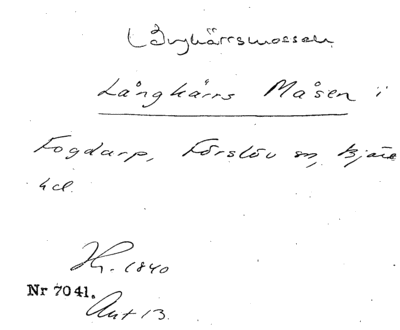 Långkärrsmossen
Långkärrs Måsen i
Fogdarp, Förslöv sn, Bjäre
hd.
Hr. 1840
Nr 7041.
Akt 13.